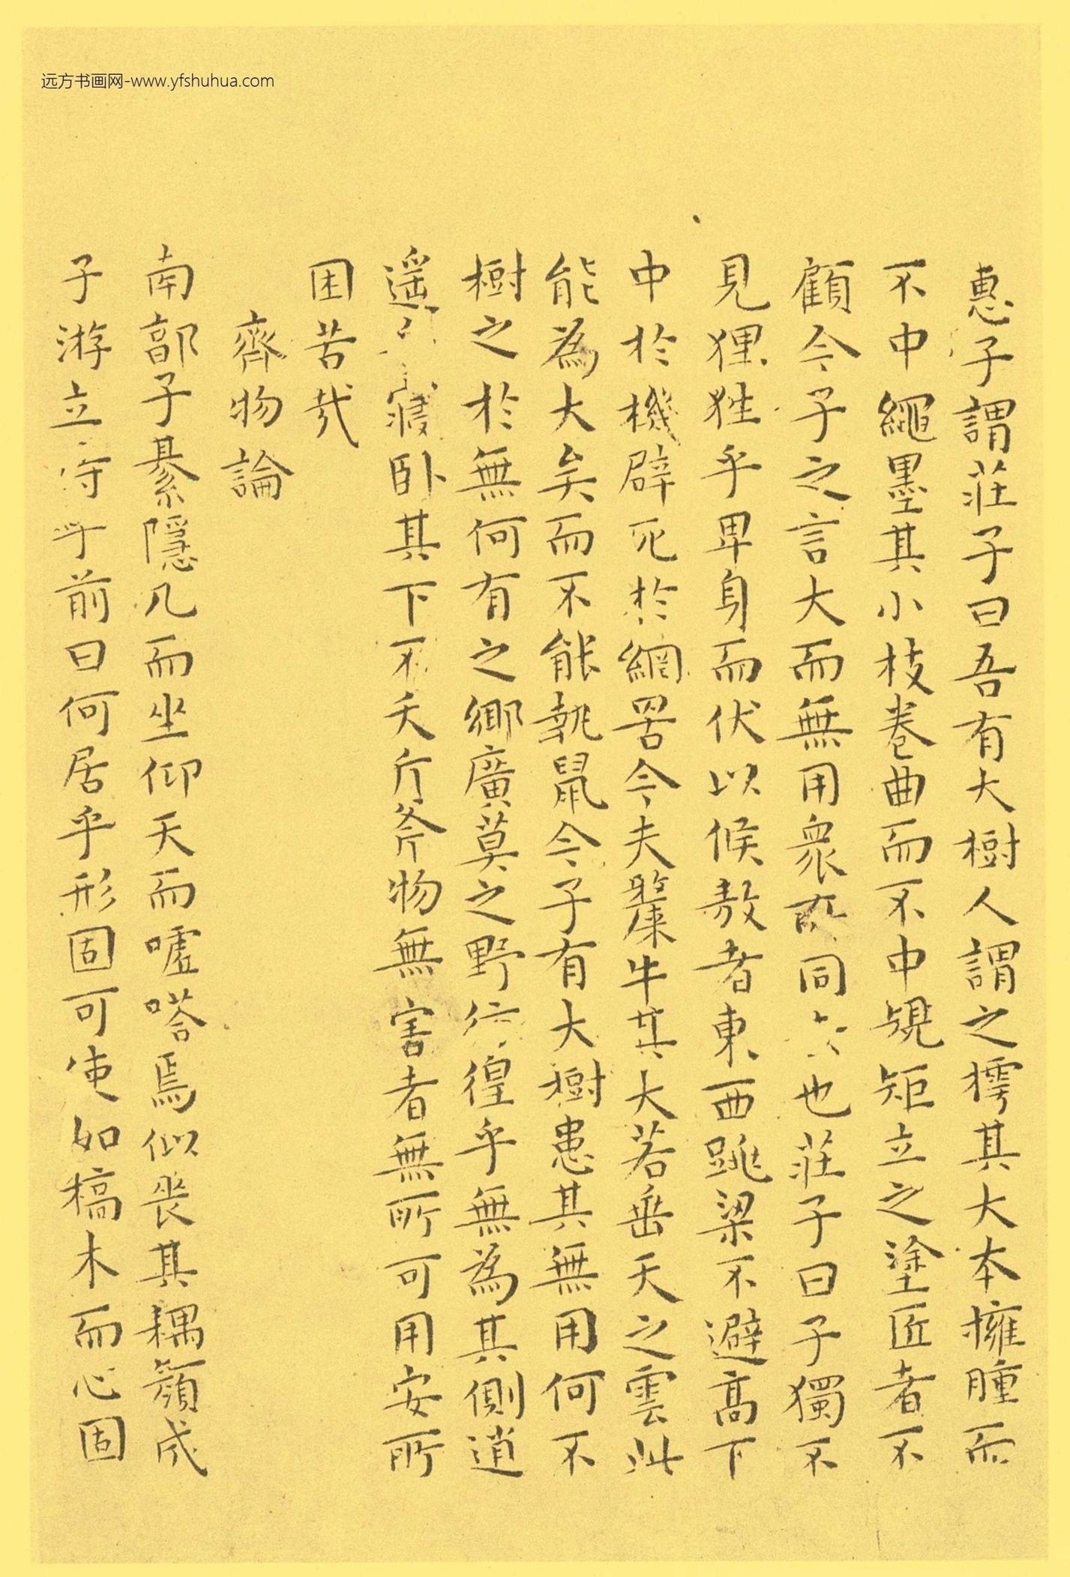 远方书画网-www.yfshuhua.com
惠子謂莊子曰吾有大樹人謂之樗其大本擁腫而
不中繩墨其小枝卷曲而不中規矩立之塗匠者不
顧今子之言大而無用衆所同去也莊子曰子獨不
見狸狌乎卑身而伏以候敖者東西跳梁不避高下
中於機辟死於網罟今夫斄牛其大若垂天之雲此
能為大矣而不能執鼠今子有大樹患其無用何不
樹之於無何有之鄉廣莫之野彷徨乎無為其側逍
遥乎寢卧其下不夭斤斧物無害者無所可用安所
困苦哉
齊物論
南郭子綦隱几而坐仰天而嘘嗒焉似丧其耦顏成
子游立侍乎前曰何居乎形固可使如槁木而心固